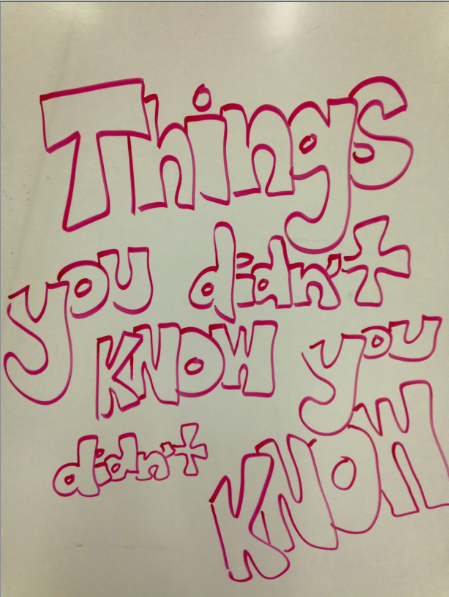 Things
you didn't
KNOW you
didn't KNOW